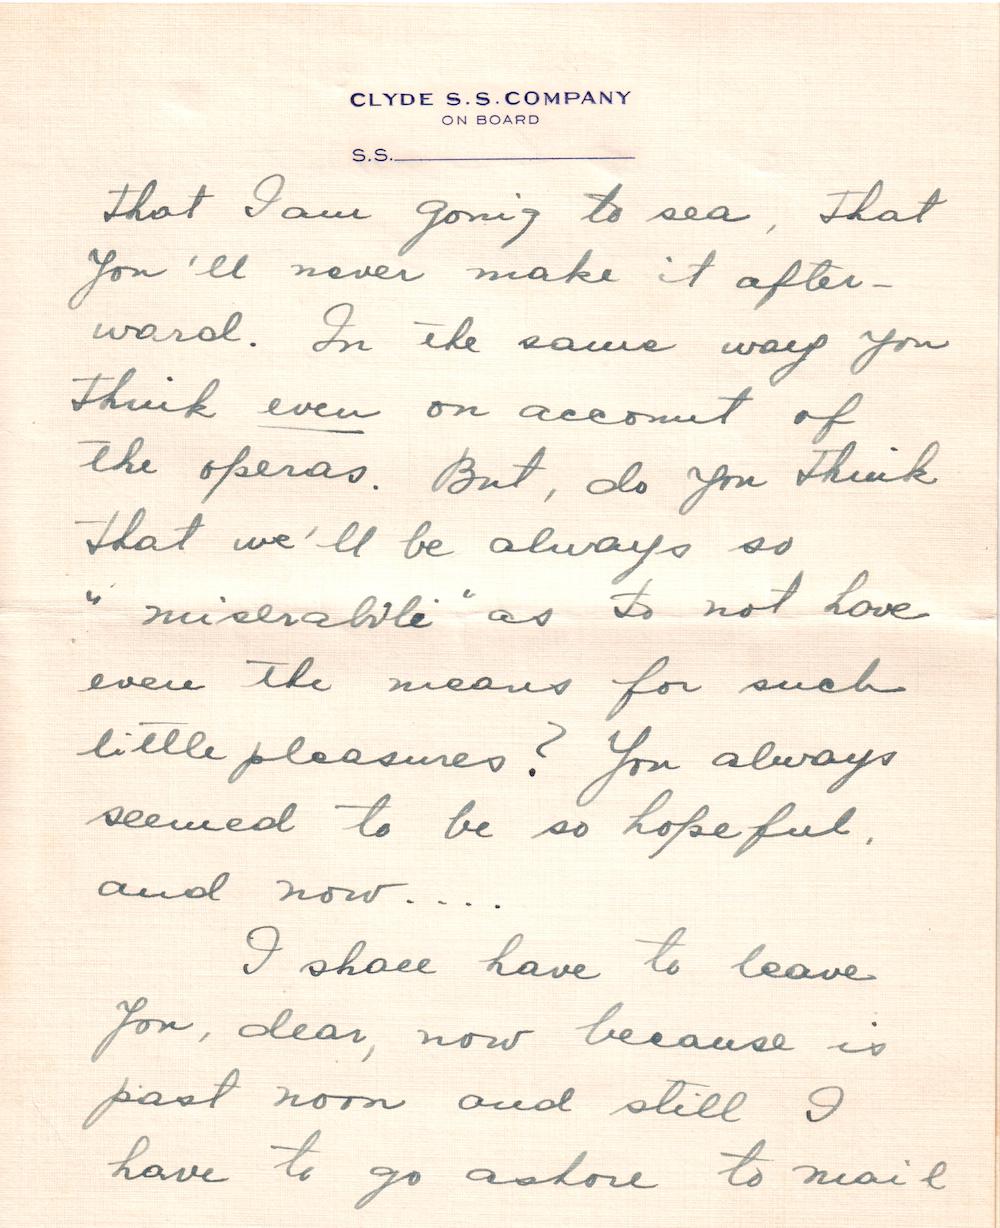 CLYDE S.S. COMPANY
ON BOARD
S.S.
that I am going to sea, that
you'll never make it after-
ward. In the same way you
think even on account of
the operas. But, do you think
that we'll be always so
"miserabili" as to not have
even the means for such
little pleasures? You always
seemed to be so hopeful,
and now....
I shall have to leave
you, dear, now because is
past noon and still I
have to go ashore to mail